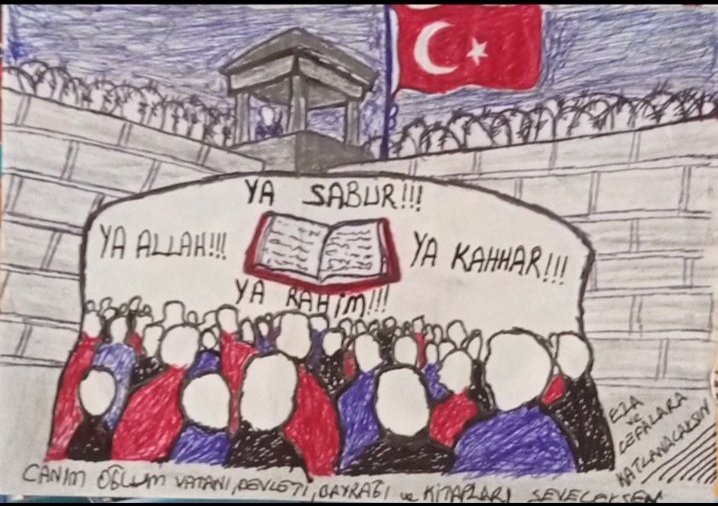 YA SABUR!!!
YA ALLAH!!!
YA KAHHAR!!!
YA RAHİM!!!
EZA
ve
CEFALARA
KATLANACAKSIN
CANIM OĞLUM VATANI, DEVLETİ, BAYRAĞI ve KİTAPLARI SEVECEKSEN